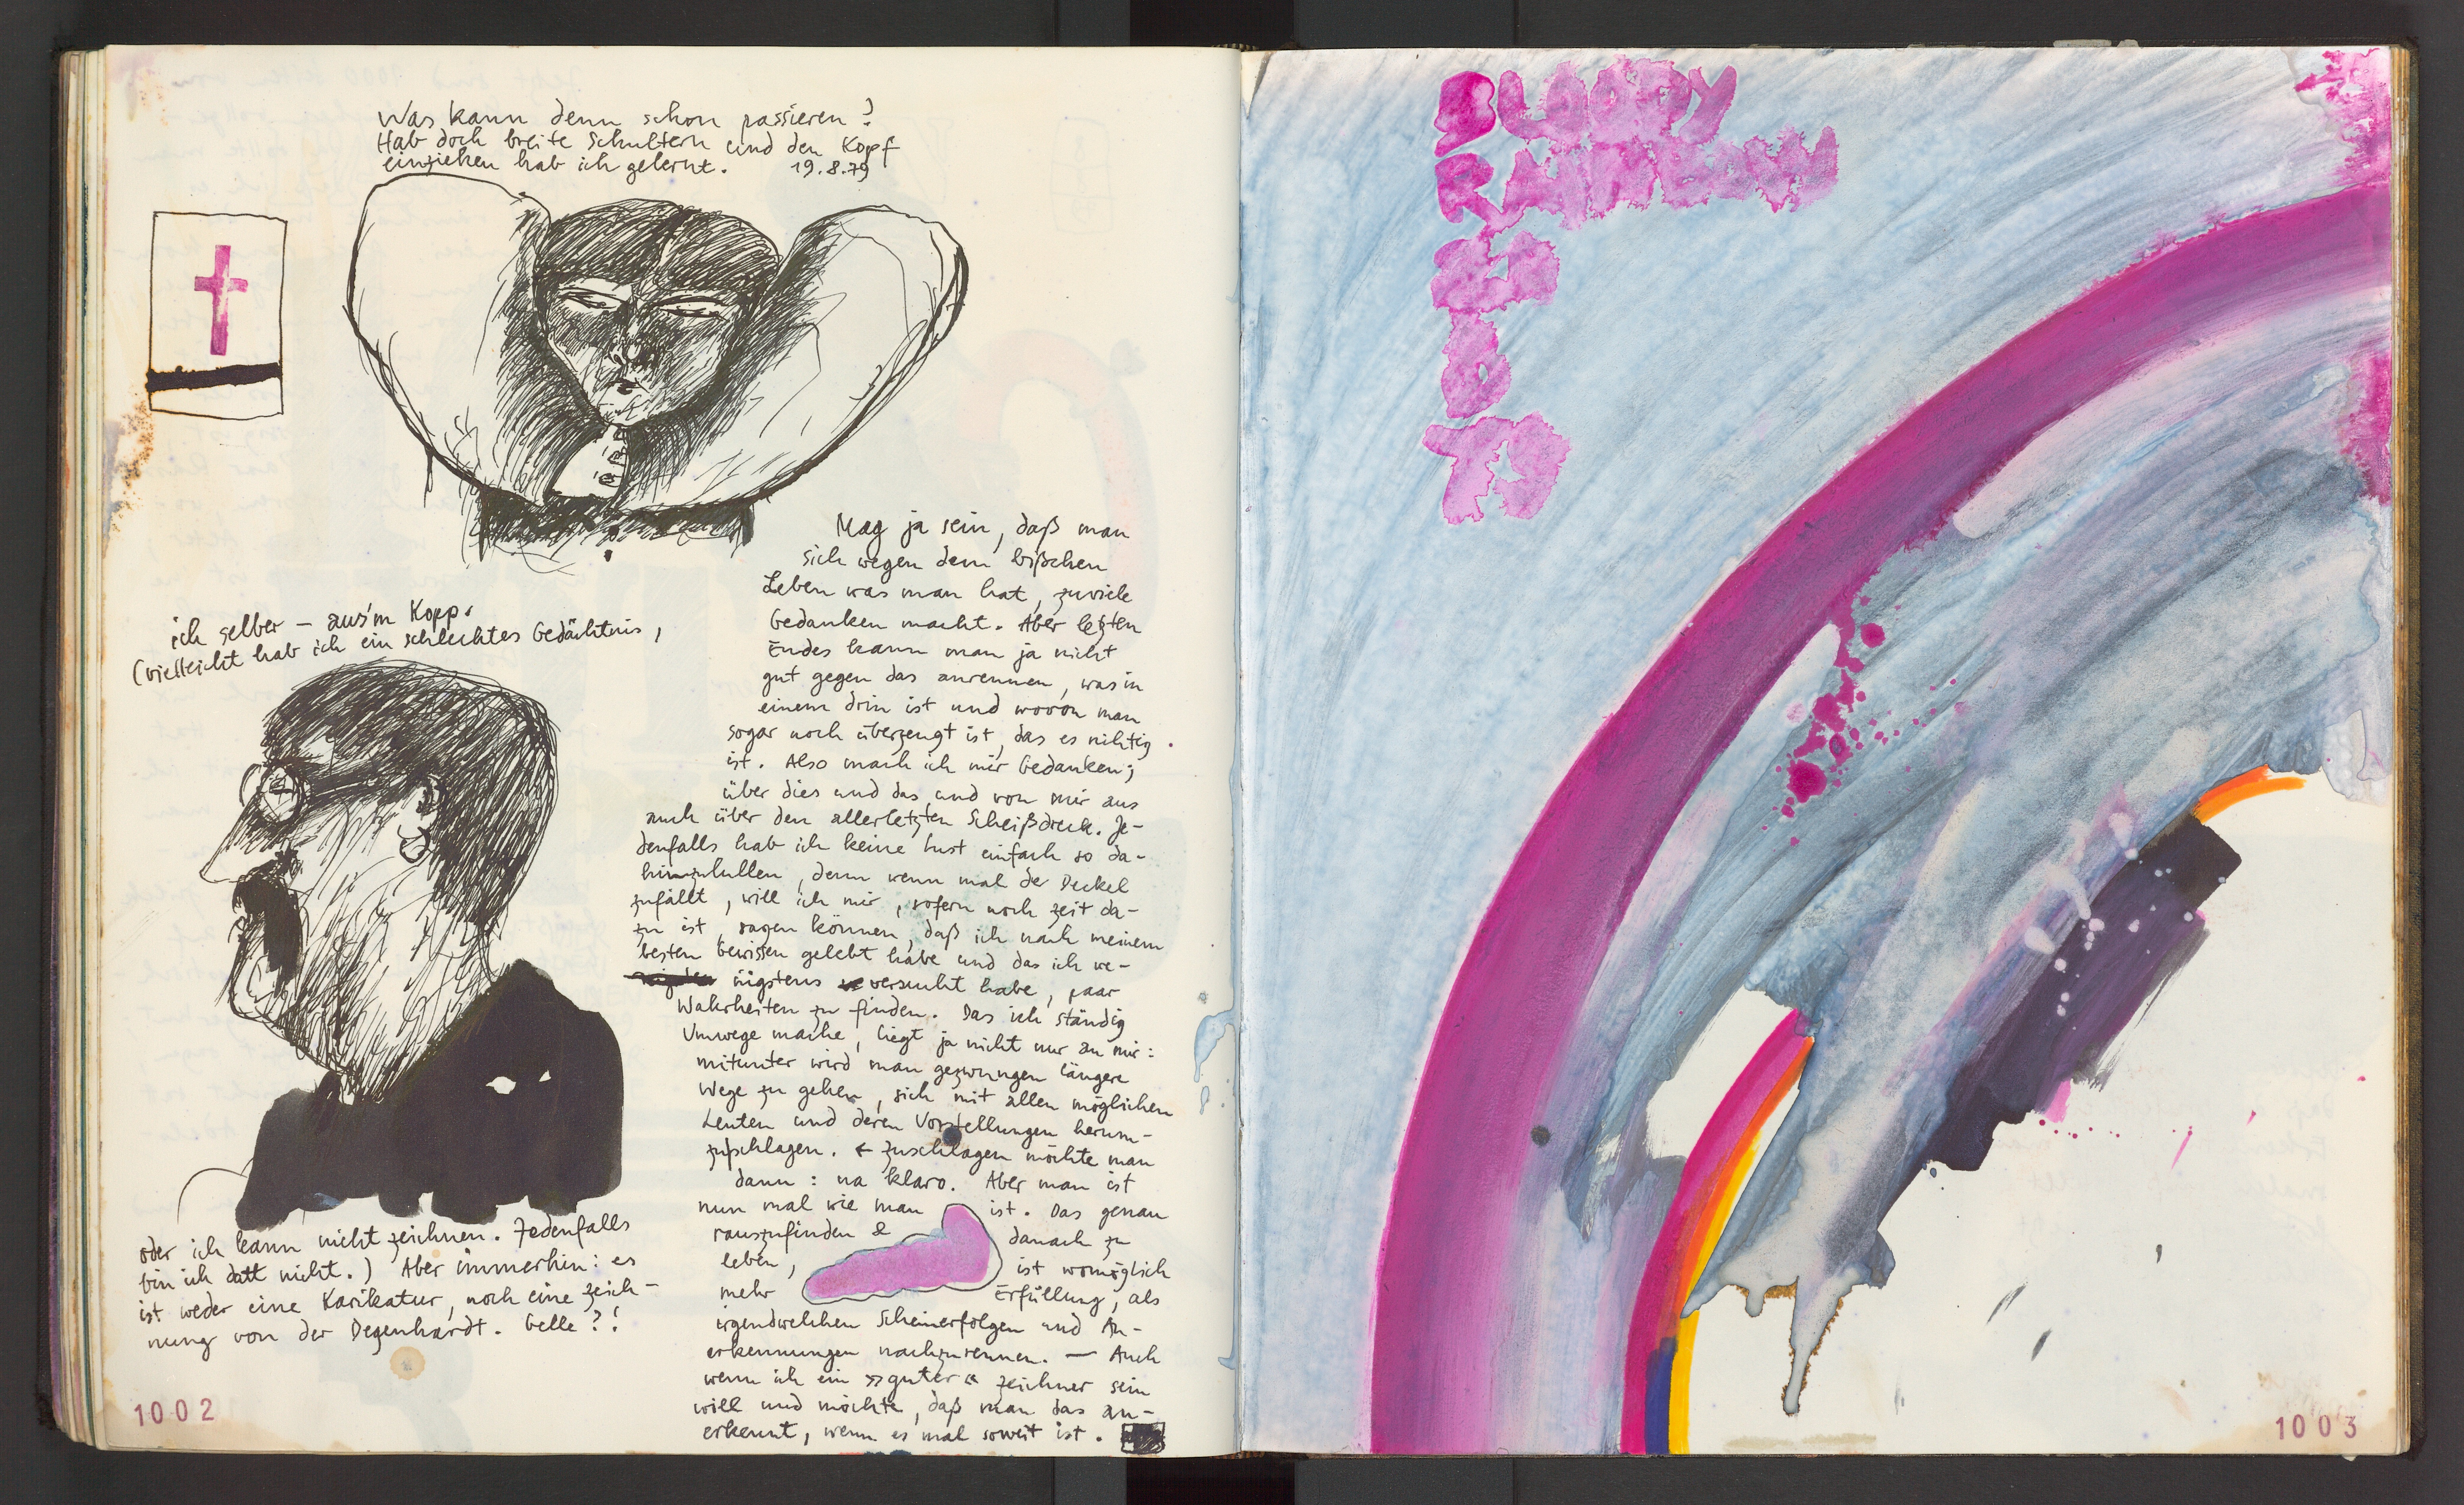 Was kann denn schon passieren?
Hab doch breite Schultern und den Kopf
einziehen hab ich gelernt. 19.8.79
ich selber – aus'm Kopp.
(vielleicht hab ich ein schlechtes Gedächtnis,
oder ich kann nicht zeichnen. Jedenfalls
bin ich datt nicht.) Aber immerhin: es
ist weder eine Karikatur, noch eine Zeich-
nung von der Degenhardt. Gelle?!
1002
Mag ja sein, daß man
sich wegen dem bißchen
Leben was man hat, zuviele
Gedanken macht. Aber letzten
Endes kann man ja nicht
gut gegen das anrennen, was in
einem drin ist und wovon man
sogar noch überzeugt ist, das es richtig
ist. Also mach ich mir Gedanken;
über dies und das und von mir aus
auch über den allerletzten Scheißdreck. Je-
denfalls hab ich keine Lust einfach so da-
hinzulullen, denn wenn mal der Deckel
zufällt, will ich mir, sofern noch Zeit da-
zu ist, sagen können, daß ich nach meinem
besten Gewissen gelebt habe und das ich we-
nigstens versucht habe, paar
Wahrheiten zu finden. Das ich ständig
Umwege mache, liegt ja nicht nur an mir:
mitunter wird man gezwungen längere
Wege zu gehen, sich mit allen möglichen
Leuten und deren Vorstellungen herum-
zuschlagen. ← Zuschlagen möchte man
dann: na klaro. Aber man ist
nun mal wie man ist. Das genau
rauszufinden & danach zu
leben, ist womöglich
mehr Erfüllung, als
irgendwelchen Scheinerfolgen und An-
erkennungen nachzurennen. — Auch
wenn ich ein »guter« Zeichner sein
will und möchte, daß man das an-
erkennt, wenn es mal soweit ist.
BLOODY
RAINBOW
1003